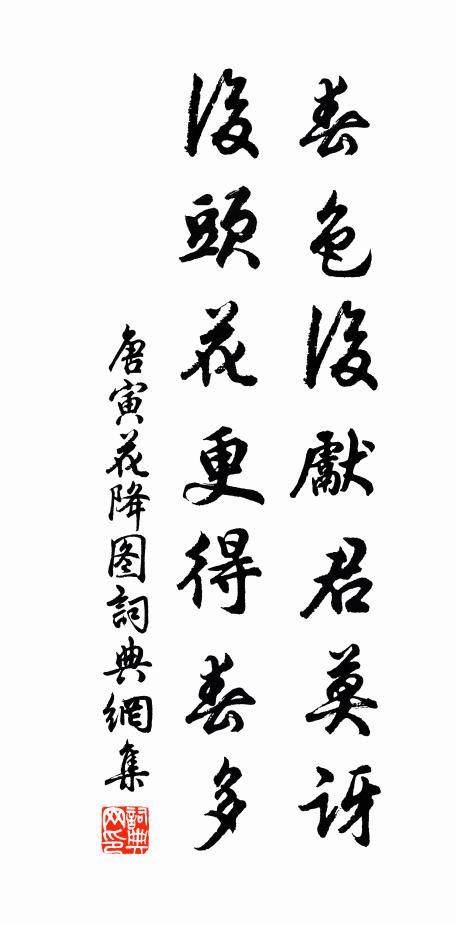 春色後獻君莫訝
後頭花更得春多
唐寅花降图詞典網集
詞典网印